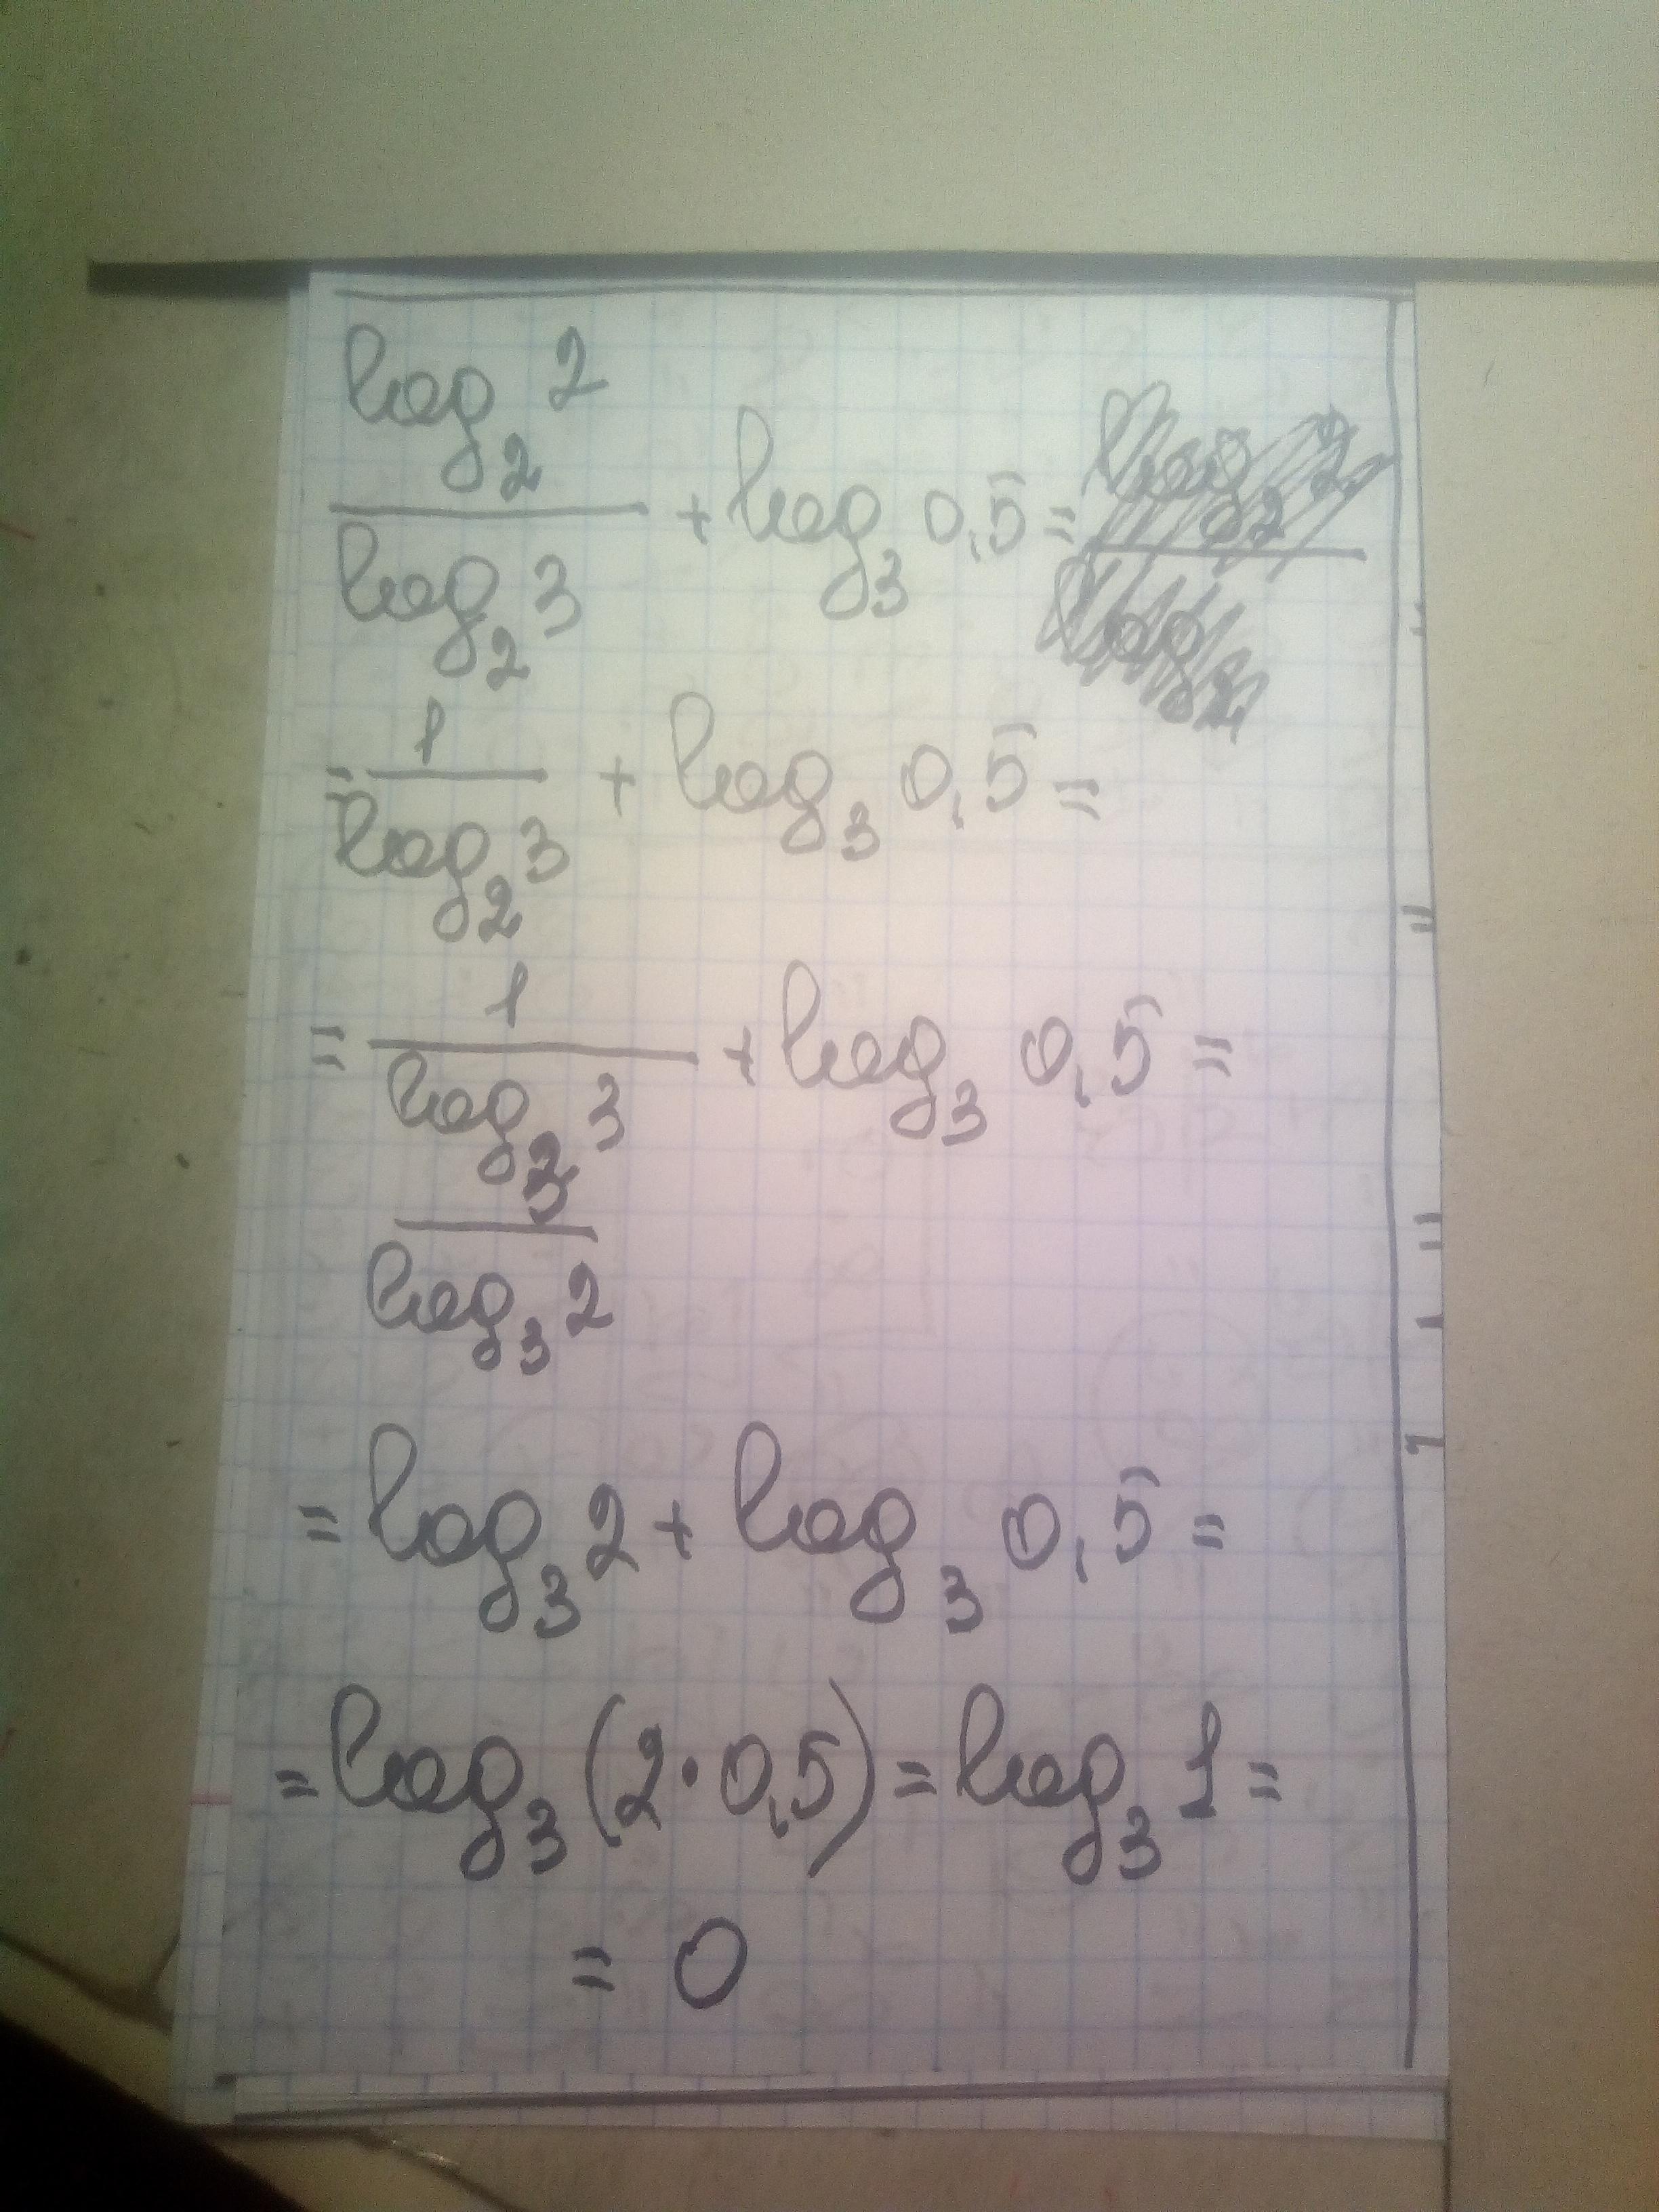 log₂ 2 / log₂ 3 + log₃ 0,5 =
= 1 / log₂ 3 + log₃ 0,5 =
= 1 / (log₃ 3 / log₃ 2) + log₃ 0,5 =
= log₃ 2 + log₃ 0,5 =
= log₃ (2 · 0,5) = log₃ 1 =
= 0